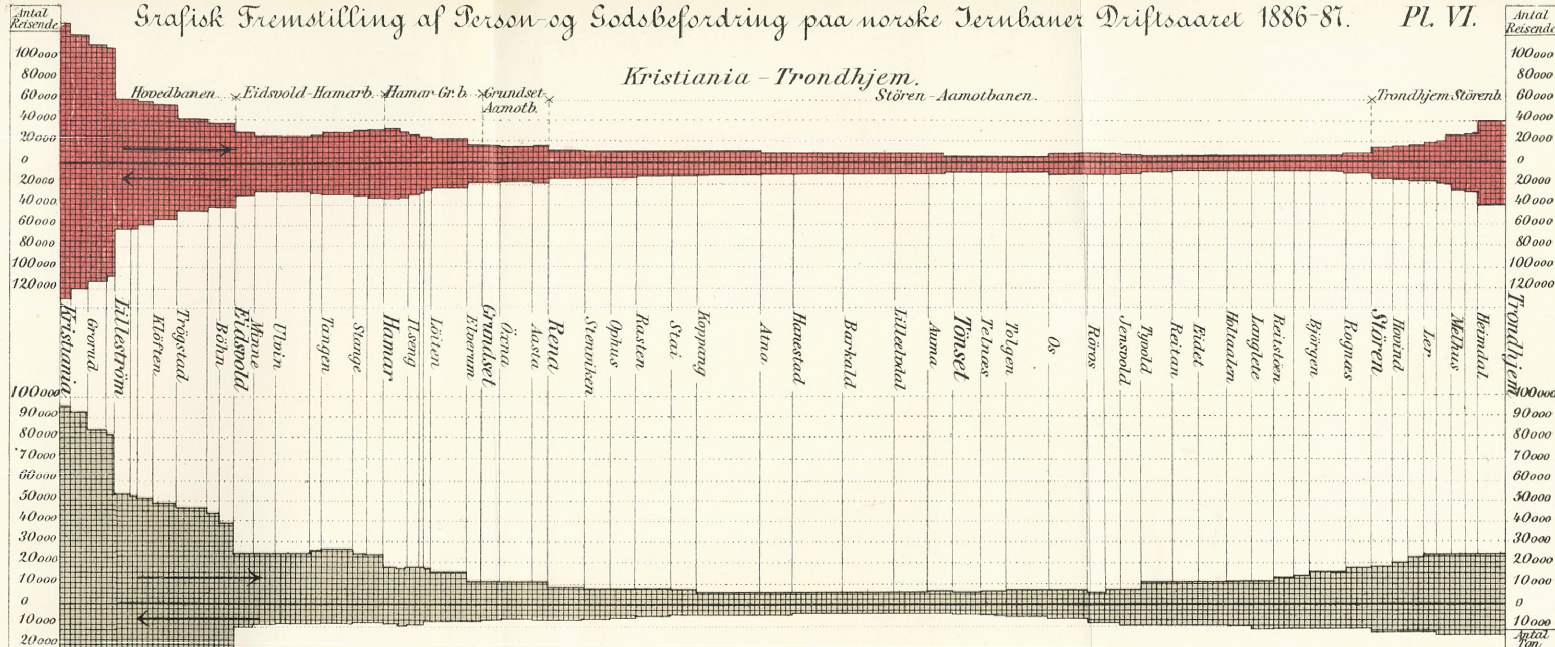 Antal
Reisende
Grafisk Fremstilling af Person- og Godsbefordring paa norske Jernbaner Driftsaaret 1886-87. Pl. VI.
Antal
Reisende
Kristiania - Trondhjem.
Hovedbanen
Eidsvold-Hamarb.
Hamar-Gr.b.
Grundset-
Aamotb.
Stören-Aamotbanen.
Trondhjem Störenb.
100000
80000
60000
40000
20000
0
20000
40000
60000
80000
100000
120000
100000
80000
60000
40000
20000
0
20000
40000
60000
80000
100000
120000
Kristiania
Grorud
Lilleström
Klöften
Trögstad
Böhn
Eidsvold
Minne
Ulvin
Tangen
Stange
Hamar
Ilseng
Löiten
Elverum
Grundset
Öxna
Aasta
Rena
Stenviken
Ophus
Rasten
Stai
Koppang
Atna
Hanestad
Barkald
Lilleelvdal
Auma
Tönset
Telnes
Tolgen
Os
Röros
Jensvold
Tyvold
Reitan
Eidet
Holtaalen
Langlete
Reitstöen
Bjørgen
Rognæs
Stören
Hovind
Ler
Melhus
Heimdal
Trondhjem
100000
90000
80000
70000
60000
50000
40000
30000
20000
10000
0
10000
20000
100000
90000
80000
70000
60000
50000
40000
30000
20000
10000
0
10000
Antal
Ton.